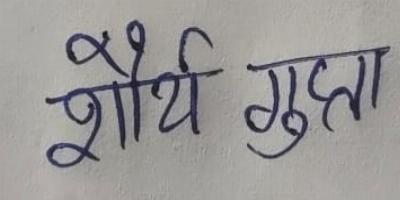 शौर्य गुप्ता